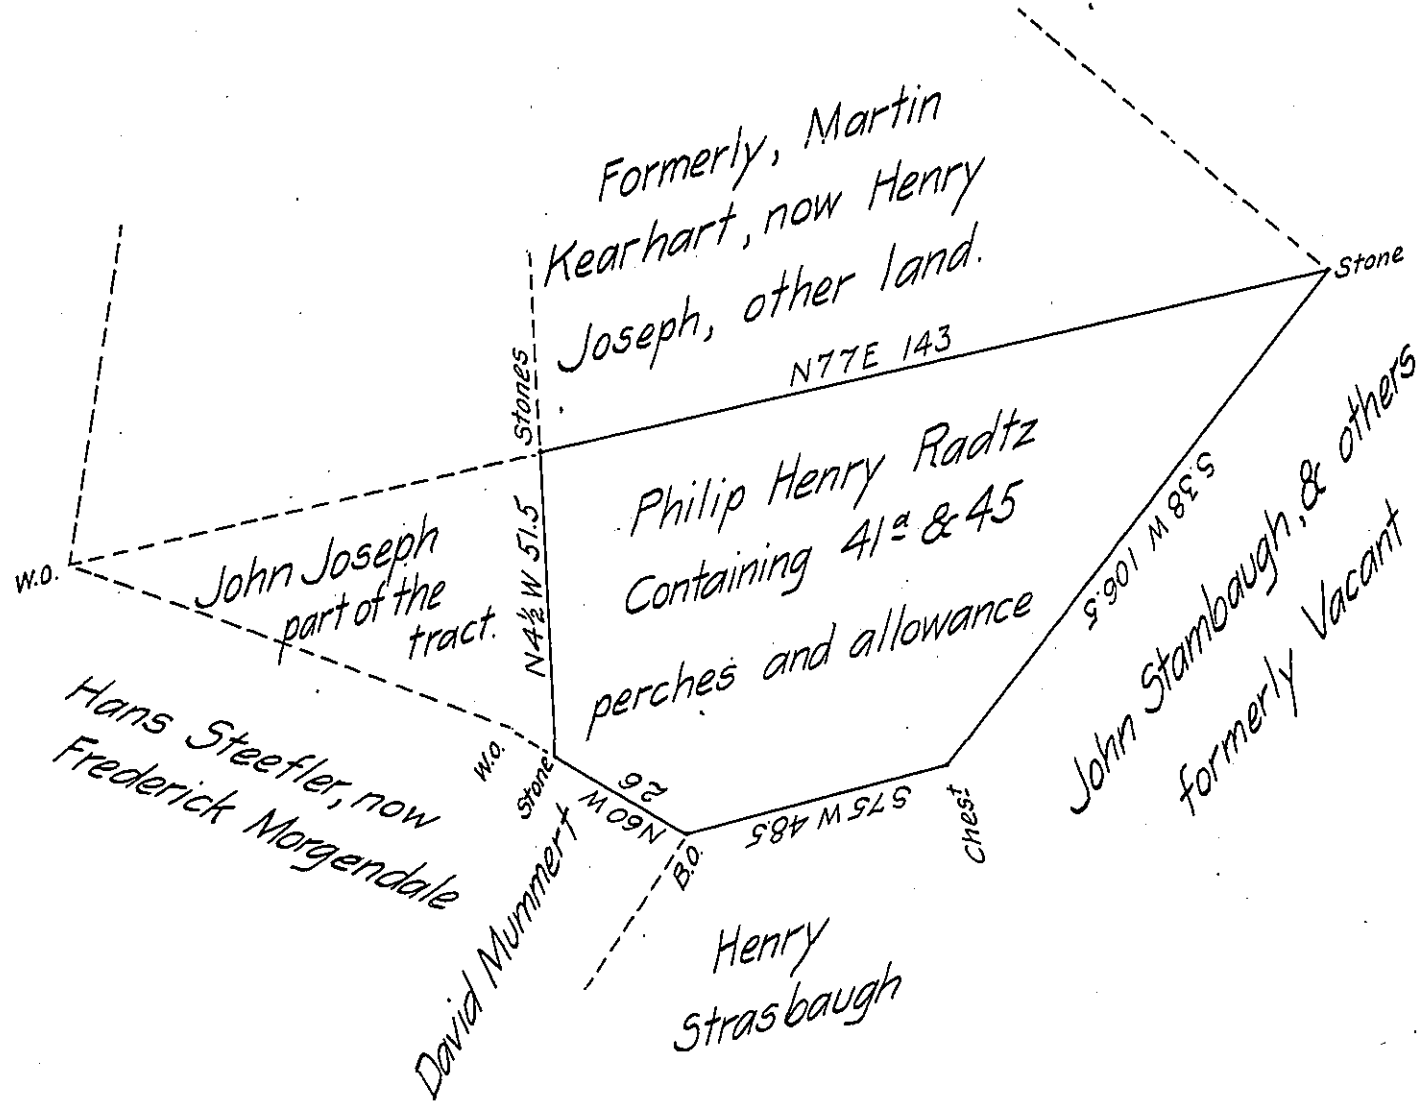 Formerly, Martin
Kearhart, now Henry
Joseph, other land.
Stone
Stones
N77E 143
Philip Henry Radtz
Containing 41ª & 45
perches and allowance
S.38 W 106.5
John Stambaugh, & others
formerly Vacant
W.O.
John Joseph
part of the
tract.
N4½W 51.5
Hans Steefler, now
Frederick Morgendale
W.O.
Stone
N60W
26
S75W 48.5
Chest
B.O.
David Mummert
Henry
Strasbaugh